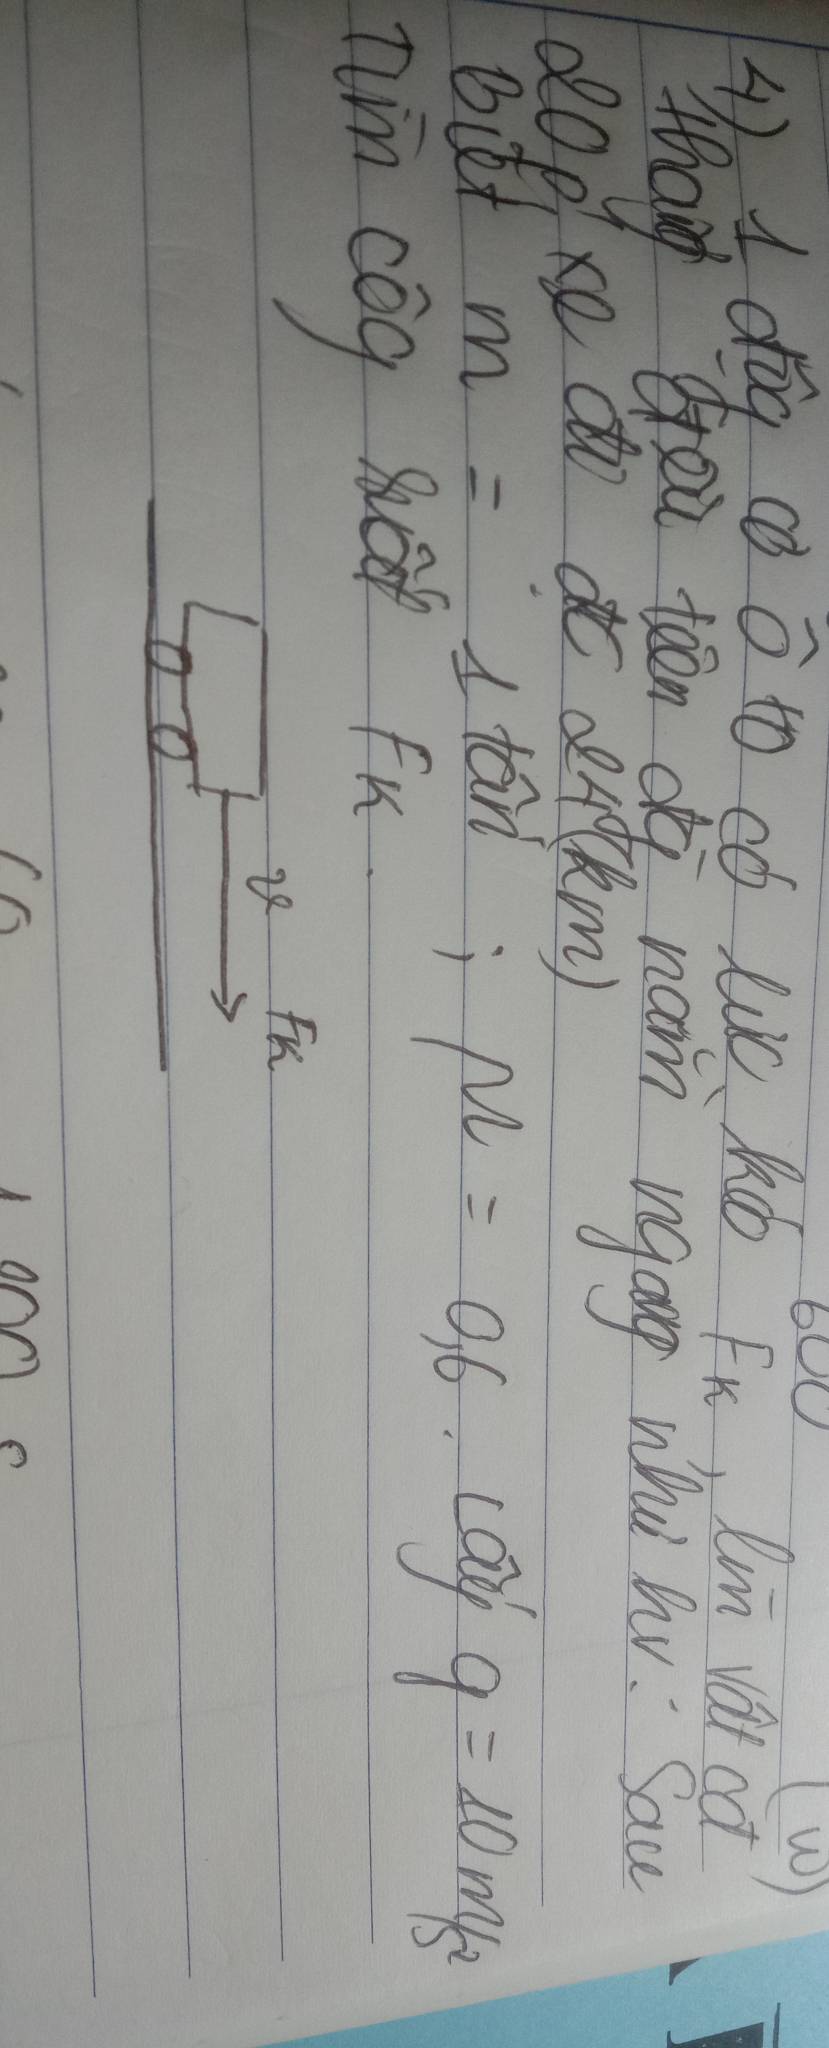 600
(W)
4) 1 động cơ ô tô có lực kéo Fk, lm̄ vật cđ
thẳng đều trên đg̀ nằm ngang như hv: Sau
20 p', xe đi đc 24 (km)
biết m = 1 tấn ; μ = 0,6. Lấy g = 10 m/s²
Tìm côg suất Fk.
v Fk